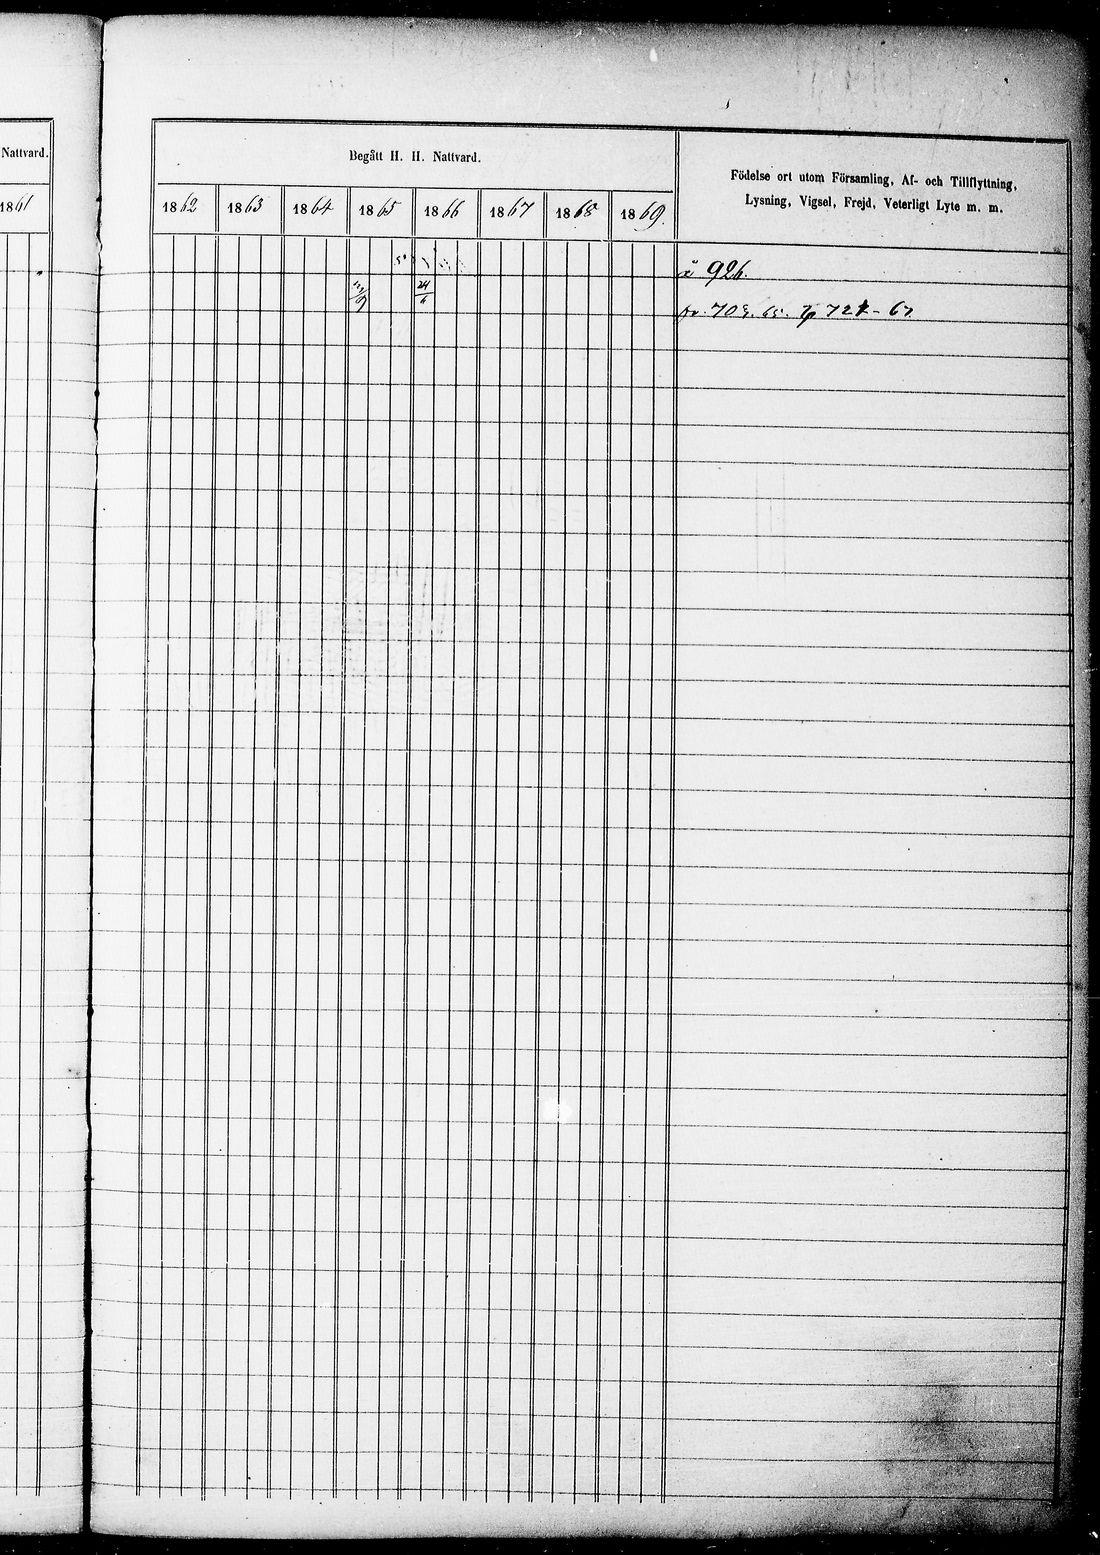 Nattvard.
1861
Begått H. H. Nattvard.
Födelse ort utom Församling, Af- och Tillflyttning,
Lysning, Vigsel, Frejd, Veterligt Lyte m. m.
1862 1863 1864 1865 1866 1867 1868 1869.
å 926.
24/6
fr. 703. 65. 724 - 67